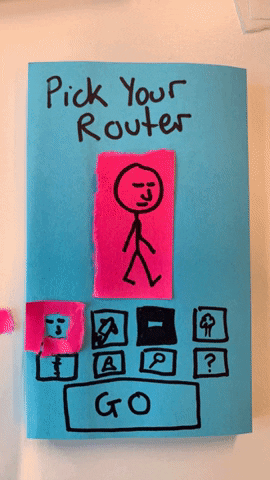 Pick Your
Router
?
GO